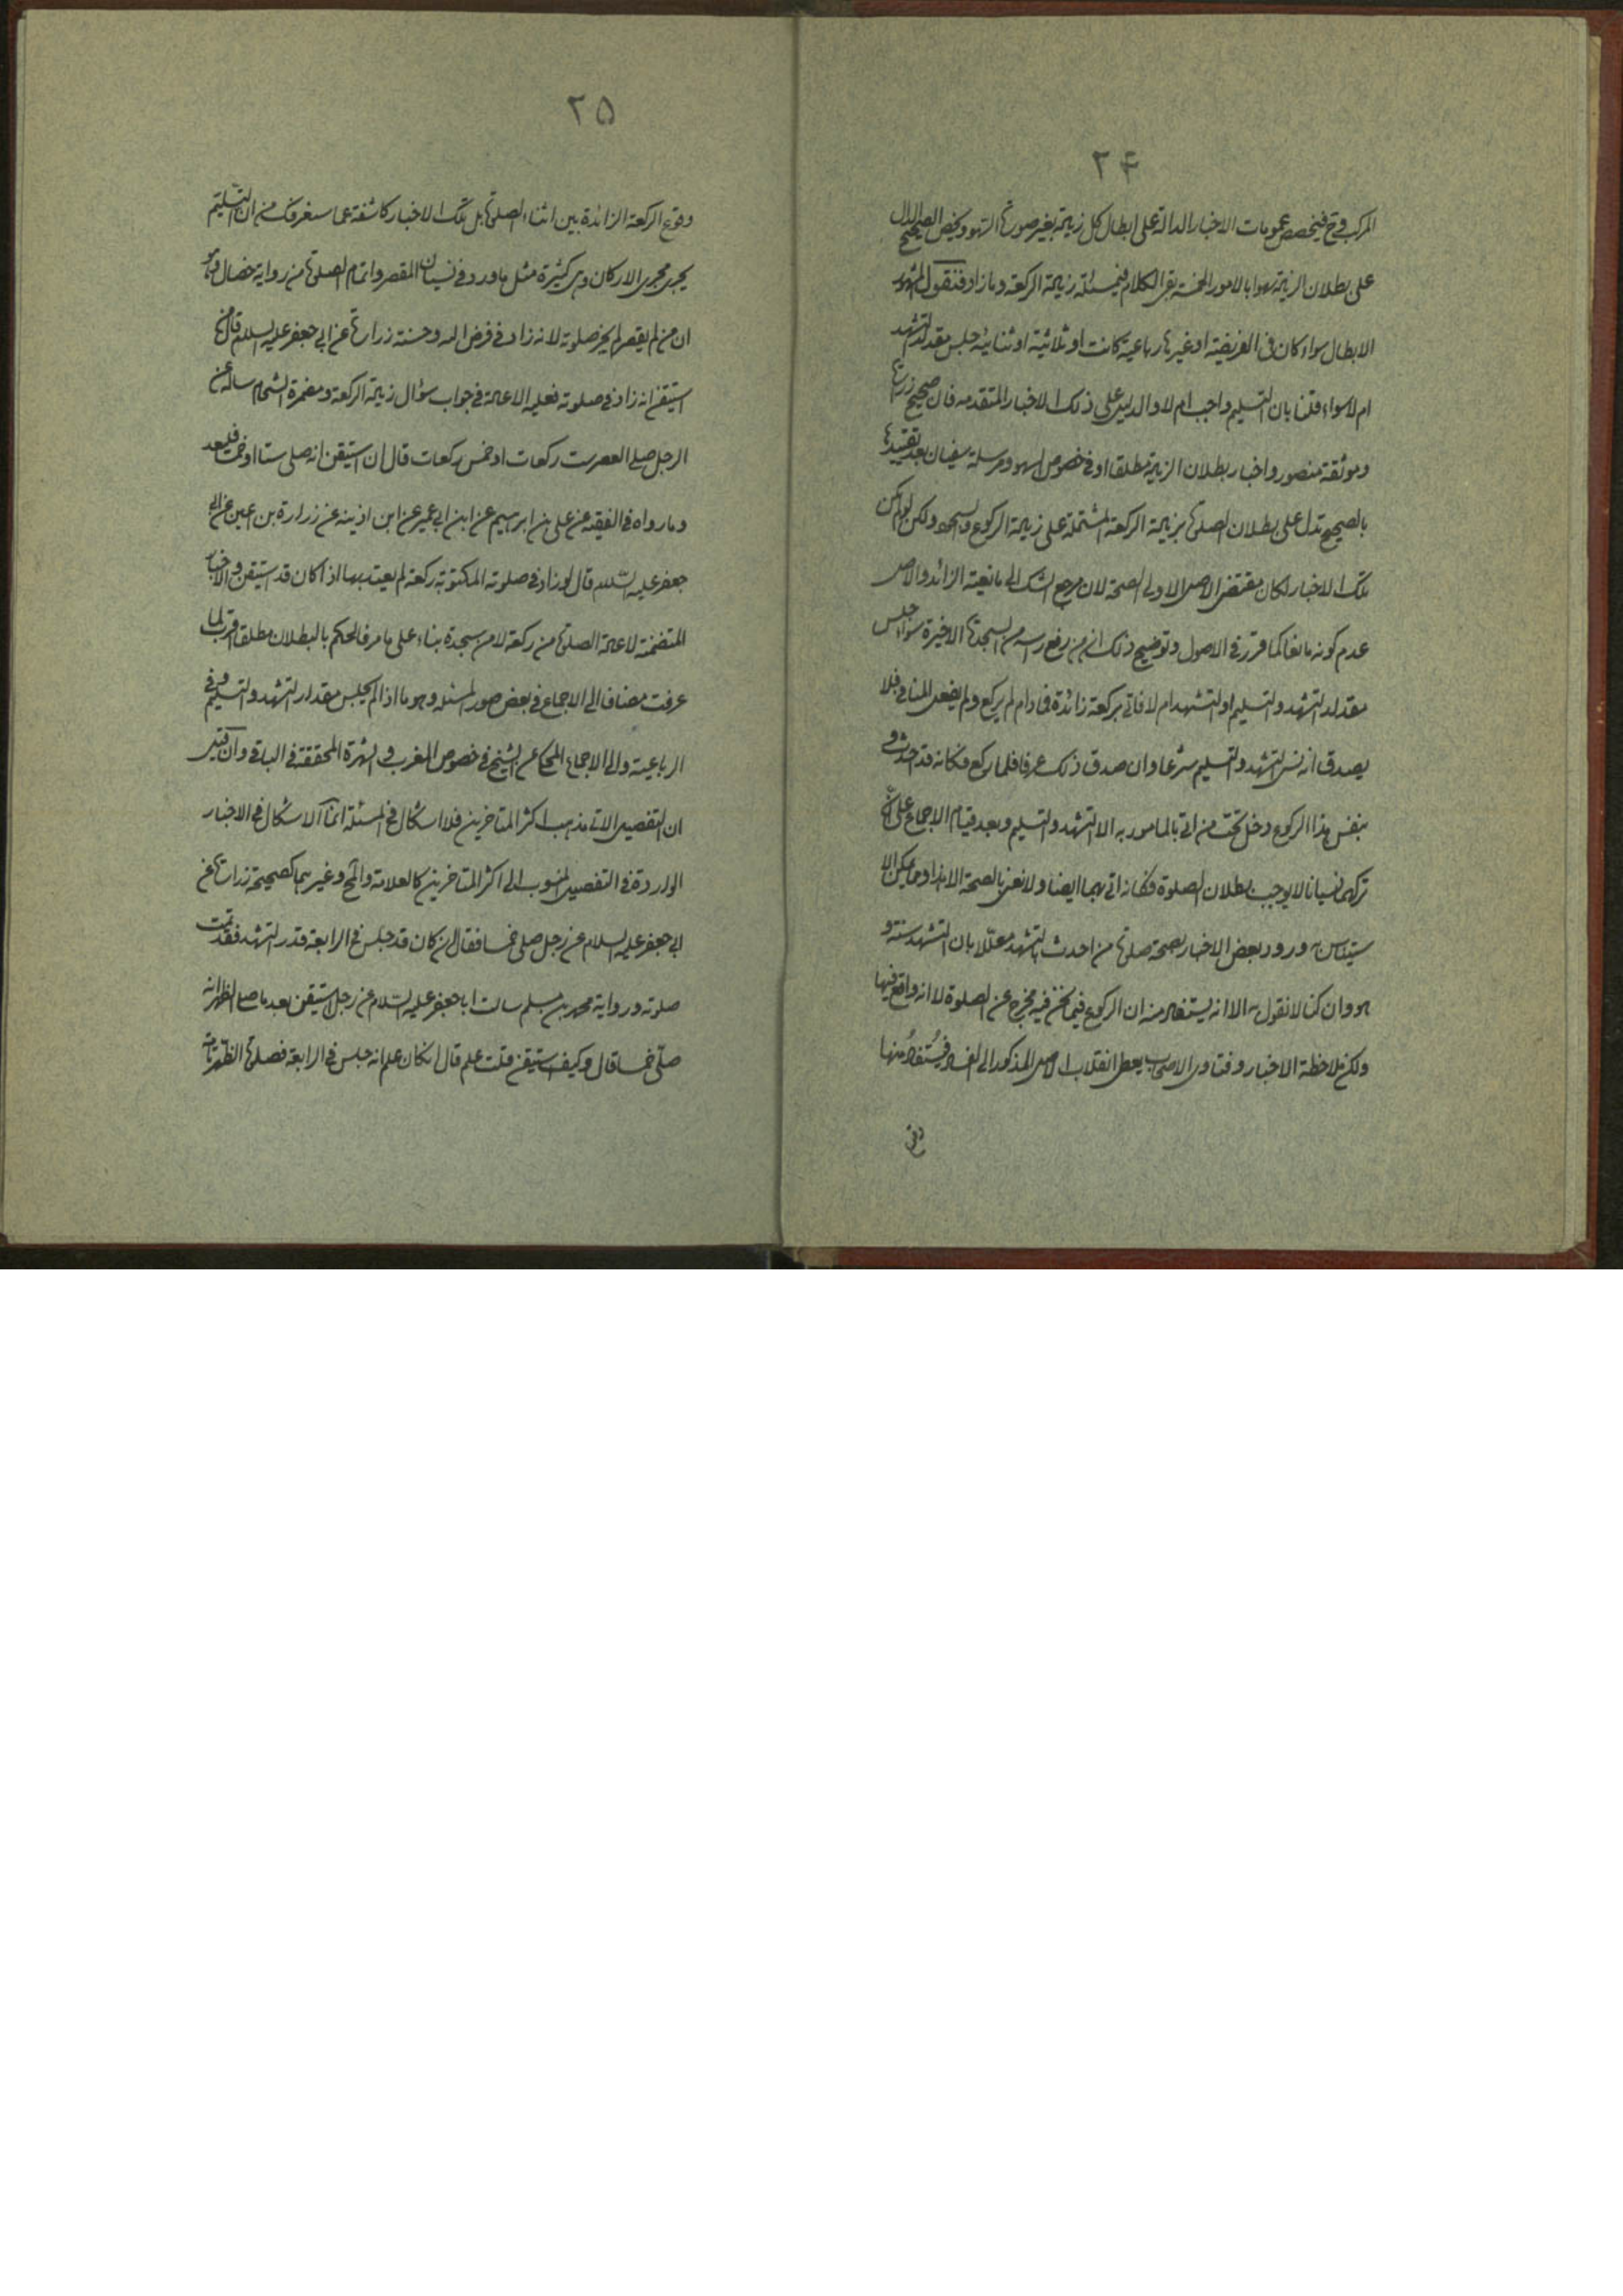 ۲۴
المركب فح فيخصص عمومات الاخبار الدالة على ابطال كل زيادة بغير صورة السهو ويخص الصحيح الدال
على بطلان الزيادة سهوا بالامور الخمسة بقى الكلام فى مسئلة زيادة الركعة وما زاد فنقول المشهور
الابطال سواء كان فى الفريضة او غيرها رباعية كانت او ثلاثية او ثنائية جلس مقدار التشهد
ام لا سواء قلنا بان التسليم واجب ام لا والدليل على ذلك الاخبار المتقدمه فان صحيح زرارة
وموثقة منصور واخبار بطلان الزيادة مطلقا او فى خصوص السهو ومرسلة سفيان بعد تقييدها
بالصحيح تدل على بطلان الصلوة بزيادة الركعة المشتملة على زيادة الركوع والسجود ولكن لو لم يكن
تلك الاخبار لكان مقتضى الاصل الاولى الصحة لان مرجع الشك الى مانعية الزائد والاصل
عدم كونه مانعا كما قرر فى الاصول وتوضيح ذلك ان من رفع رأسه من السجدة الاخيرة سواء جلس
مقدار التشهد والتسليم او التشهد ام لا فاتى بركعة زائدة فما دام لم يركع ولم يفعل المنافى فلا
يصدق انه نسى التشهد والتسليم شرعا وان صدق ذلك عرفا فلما ركع فكانه قد احدث و
بنفس هذا الركوع دخل تحت من اتى بالمامور به الا التشهد والتسليم وبعد قيام الاجماع على ان
تركهما نسيانا لا يوجب بطلان الصلوة فكانه اتى بهما ايضا ولا نعنى بالصحة الا هذا ويمكن الا
ستيناس ورود بعض الاخبار بصحة صلوة من احدث بالتشهد معللا بان التشهد سنته و
هو وان كنا لا نقول به الا انه يستفاد منه ان الركوع فيما نحن فيه مخرج عن الصلوة لا انه واقع فيها
ولكن ملاحظة الاخبار وفتاوى الاصحاب يعطى انقلاب الاصل المذكور الى الفساد فيستفاد منها
وقوع
۲۵
وقوع الركعة الزائدة بين اثناء الصلوة بل تلك الاخبار كاشفة عما سنعرفك من ان التسليم
يجرى مجرى الاركان وهى كثيرة مثل ما ورد فى نسيان المقصر واتمام الصلوة من رواية خصال وهو
ان من لم يقصر لم يجز صلوته لانه زاد فى فرض الله وحسنة زرارة عن ابى جعفر عليه السلام قال من
استيقن انه زاد فى صلوته فعليه الاعادة فى جواب سؤال زيادة الركعة ومضمرة الشحام سالته عن
الرجل صلى العصر ست ركعات او خمس ركعات قال ان استيقن انه صلى ستا او خمسا فليعد
وما رواه فى الفقيه عن على بن ابرهيم عن ابن ابى عمير عن ابن اذينه عن زرارة بن اعين عن ابى
جعفر عليه السلام قال لو زاد فى صلوته المكتوبة ركعة لم يعتد بها اذا كان قد استيقن والاخبار
المتضمنة لاعادة الصلوة من ركعة لا من سجدة بناء على ما مر فالحكم بالبطلان مطلقا اقرب لما
عرفت مضافا الى الاجماع فى بعض صور المسئلة وهو ما اذا لم يجلس مقدار التشهد والتسليم فى
الرباعية والى الاجماع المحكى عن الشيخ فى خصوص المغرب والشهرة المحققة فى الباقى وان قيل
ان التفصيل الاتى مذهب اكثر المتاخرين فلا اشكال فى المسئلة انما الاشكال فى الاخبار
الواردة فى التفصيل المنسوب الى اكثر المتاخرين كالعلامة والمح وغيرهما كصحيحة زرارة عن
ابى جعفر عليه السلام عن رجل صلى خمسا فقال ان كان قد جلس فى الرابعة قدر التشهد فقد تمت
صلوته ورواية محمد بن مسلم سالت ابا جعفر عليه السلام عن رجل استيقن بعد ما صلى الظهر انه
صلى خمسا قال وكيف استيقن قلت علم قال ان كان علم انه جلس فى الرابعة فصلوة الظهر تامة